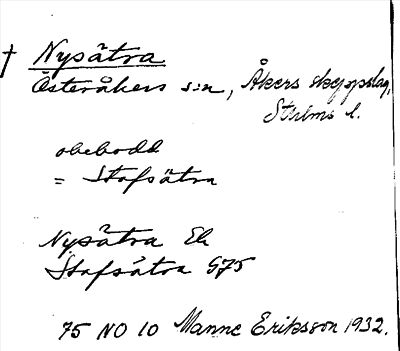 † Nysätra
Österåkers s:n, Åkers skeppslag,
Sthlms l.
obebodd
= Stafsätra
Nysätra Ek
Stafsätra G75
75 NO 10 Manne Eriksson 1932.